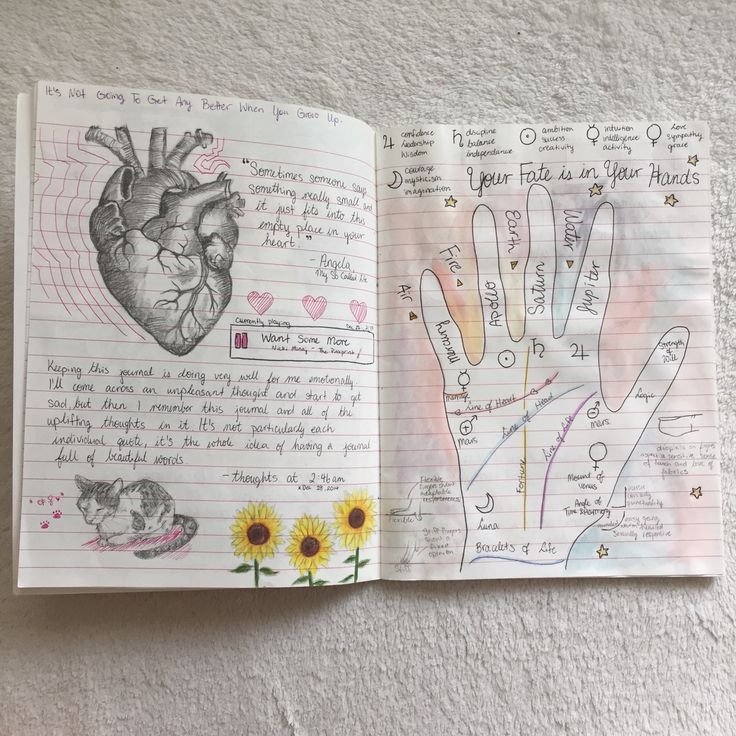 It's Not Going To Get Any Better When You Grow Up.
"Sometimes someone says
something really small and
it just fits into this
empty place in your
heart."
- Angela,
My So Called Life
Currently playing
Want Some More
Nicki Minaj - The Pinkprint
Keeping this journal is doing very well for me emotionally.
I'll come across an unpleasant thought and start to get
sad, but then I remember this journal and all of the
uplifting thoughts in it. It's not particularly each
individual quote, it's the whole idea of having a journal
full of beautiful words.
- thoughts at 2:46am
Dec 28, 2014
♃ confidence
leadership
wisdom
♄ discipline
balance
independance
☉ ambition
success
creativity
☿ intuition
intelligence
activity
♀ love
sympathy
grace
☾ courage
mysticism
imagination
Your Fate is in Your Hands
Air
Fire
Earth
Water
Mercury
Apollo
Saturn
Jupiter
Strength of Will
Logic
☿
☉
♄
♃
Line of Heart
Line of Head
Line of Life
Fortune
Mars
♂
Mars
♀
Mound of
Venus
Angle of
Time & Harmony
☾
Luna
Bracelets of Life
Flexible
fingers show
adaptable
Flexible
Stiff fingers
show a
fixed
opinion
Stiff
droplets on fingers
a sensitive sense
of touch and love of
fabrics
easy going